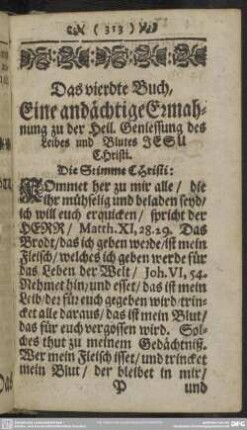 ( 313 )
Das vierdte Buch,
Eine andächtige Ermah-
nung zu der Heil. Geniessung des
Leibes und Blutes JESU
CHristi.
Die Stimme CHristi:
KOmmet her zu mir alle / die
ihr mühselig und beladen seyd /
ich will euch erquicken / spricht der
HERR / Matth. XI, 28. 29. Das
Brodt / das ich geben werde / ist mein
Fleisch / welches ich geben werde für
das Leben der Welt / Joh. VI, 54.
Nehmet hin / und esset / das ist mein
Leib / der für euch gegeben wird / trin-
cket alle daraus / das ist mein Blut /
das für euch vergossen wird. Sol-
ches thut zu meinem Gedächtniß.
Wer mein Fleisch isset / und trincket
mein Blut / der bleibet in mir /
P und